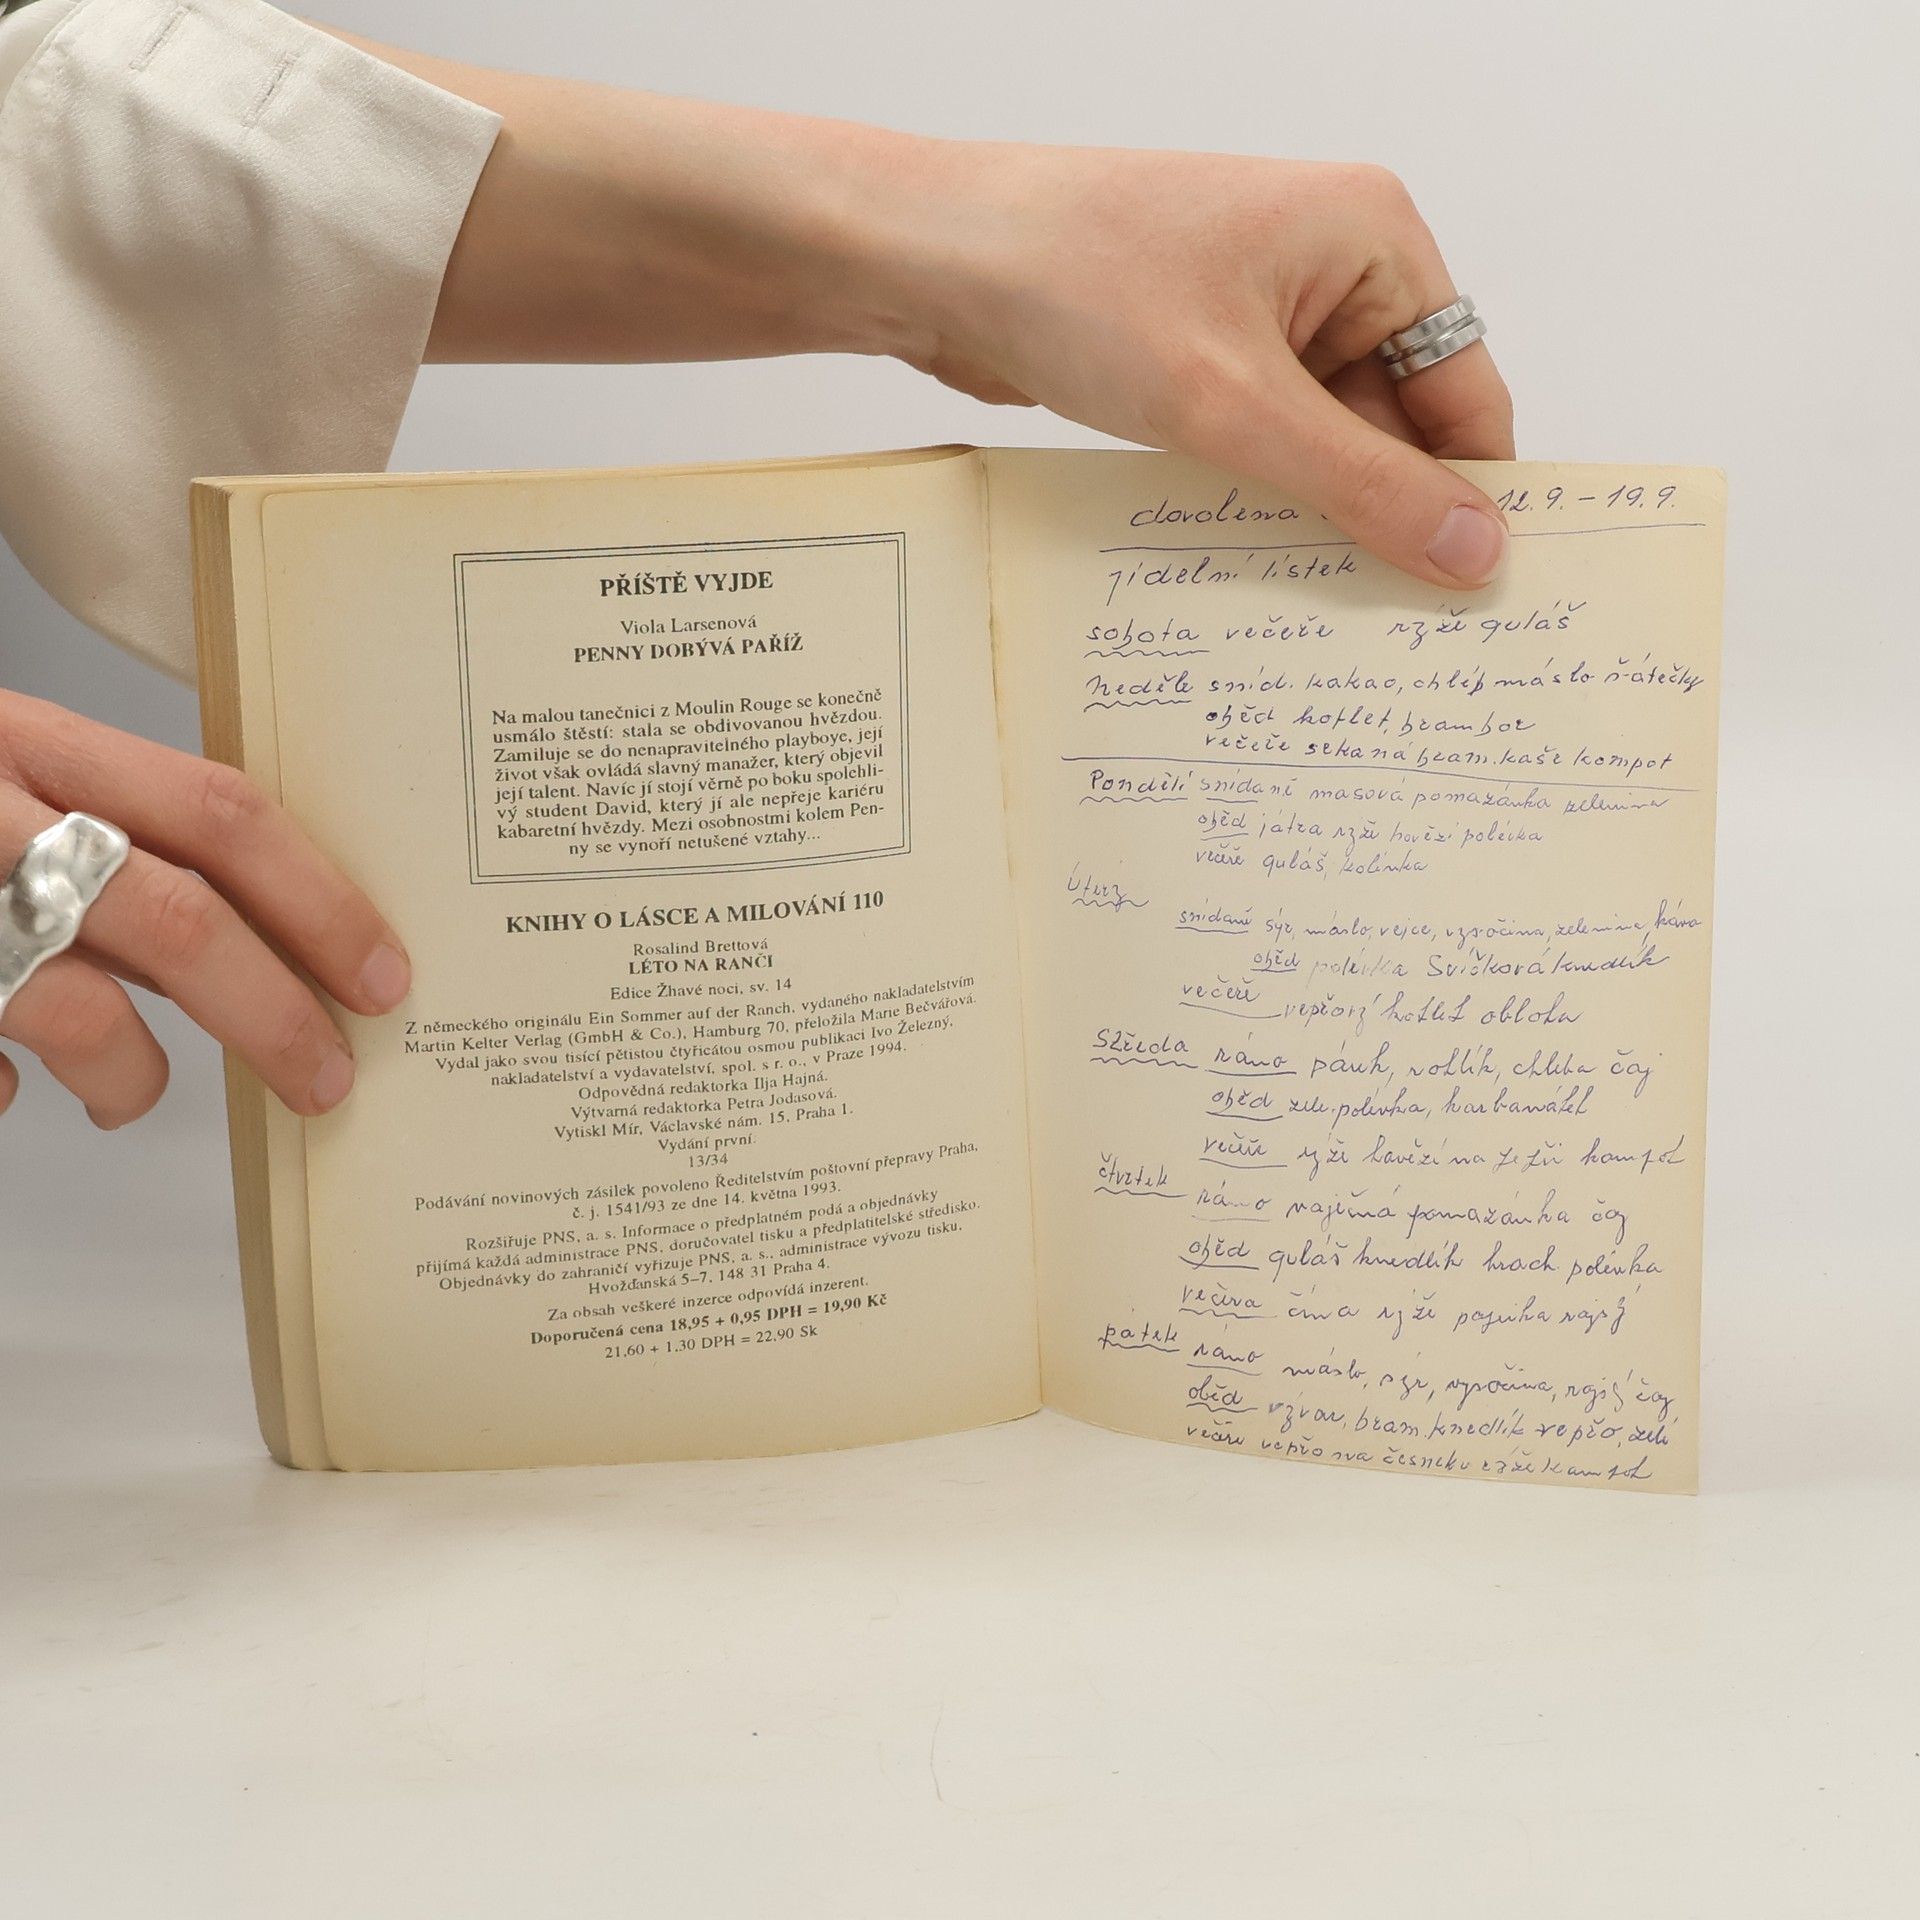 PŘÍŠTĚ VYJDE
Viola Larsenová
PENNY DOBÝVÁ PAŘÍŽ
Na malou tanečnici z Moulin Rouge se konečně
usmálo štěstí: stala se obdivovanou hvězdou.
Zamiluje se do nenapravitelného playboye, její
život však ovládá slavný manažer, který objevil
její talent. Navíc jí stojí věrně po boku spolehli-
vý student David, který jí ale nepřeje kariéru
kabaretní hvězdy. Mezi osobnostmi kolem Pen-
ny se vynoří netušené vztahy...
KNIHY O LÁSCE A MILOVÁNÍ 110
Rosalind Brettová
LÉTO NA RANČI
Edice Žhavé noci, sv. 14
Z německého originálu Ein Sommer auf der Ranch, vydaného nakladatelstvím
Martin Kelter Verlag (GmbH & Co.), Hamburg 70, přeložila Marie Bečvářová.
Vydal jako svou tisící pětistou čtyřicátou osmou publikaci Ivo Železný,
nakladatelství a vydavatelství, spol. s r. o., v Praze 1994.
Odpovědná redaktorka Ilja Hajná.
Výtvarná redaktorka Petra Jodasová.
Vytiskl Mír, Václavské nám. 15, Praha 1.
Vydání první.
13/34
Podávání novinových zásilek povoleno Ředitelstvím poštovní přepravy Praha,
č. j. 1541/93 ze dne 14. května 1993.
Rozšiřuje PNS, a. s. Informace o předplatném podá a objednávky
přijímá každá administrace PNS, doručovatel tisku a předplatitelské středisko.
Objednávky do zahraničí vyřizuje PNS, a. s., administrace vývozu tisku,
Hvožďanská 5–7, 148 31 Praha 4.
Za obsah veškeré inzerce odpovídá inzerent.
Doporučená cena 18,95 + 0,95 DPH = 19,90 Kč
21,60 + 1.30 DPH = 22,90 Sk
dovolena 12. 9. – 19. 9.
jídelní lístek
sobota večeře rýže guláš
Neděle sníd. kakao, chléb máslo
oběd kotlet, brambor
večeře sekaná bram. kaše kompot
Pondělí snídaně masová pomazánka zelenina
oběd játra rýže hovězí polévka
večeře guláš, kolínka
Úterý
snídaně sýr, máslo, vejce, vysočina, zelenina, káva
oběd polévka Svíčková knedlík
večeře vepřový kotlet obloha
Středa ráno párek, rohlík, chleba čaj
oběd zele. polévka, karbanátek
večeře rýže hovězí na kompot
čtvrtek ráno vaječná pomazánka čaj
oběd guláš knedlík hrach polévka
večeřa čína rýže rajský
pátek ráno máslo, sýr, vysočina, rajský čaj
oběd vývar, bram. knedlík vepřo, zelí
večeře vepřo na česneku rýže kompot